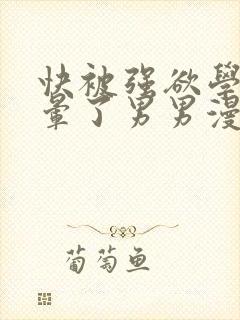 快被强欲學
晕了男男漫
葡萄鱼